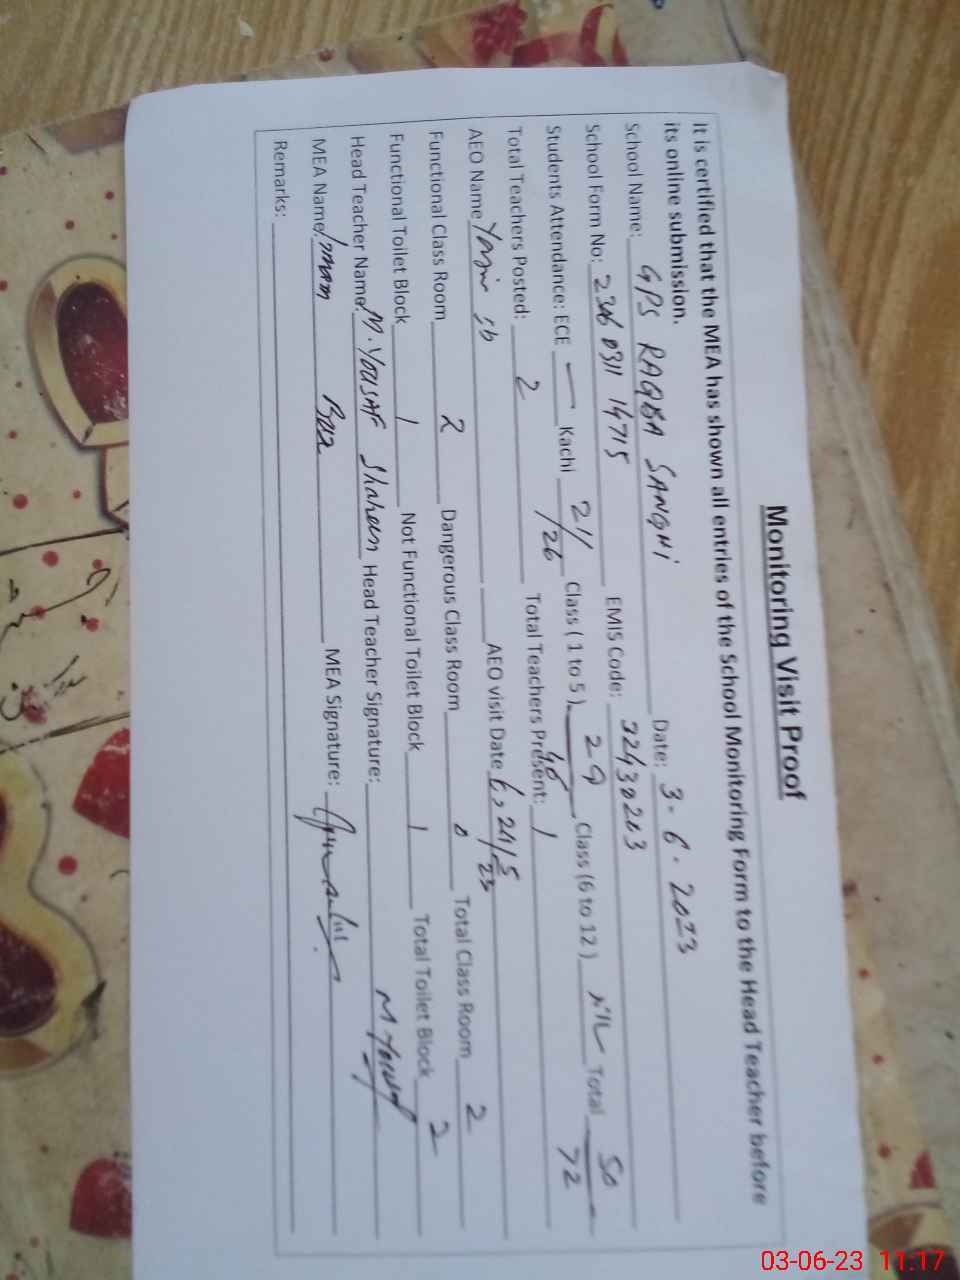 Monitoring Visit Proof
It is certified that the MEA has shown all entries of the School Monitoring Form to the Head Teacher before
its online submission.
School Name: GPS RAQBA SANGHI Date: 3-6-2023
School Form No: 2306 0311 14715 EMIS Code: 32430203
Students Attendance: ECE — Kachi 21/26 Class ( 1 to 5 ) 29/46 Class (6 to 12 ) NIL Total 50/72
Total Teachers Posted: 2 Total Teachers Present: 1
AEO Name Yasir sb AEO visit Date 6, 24/5/23
Functional Class Room 2 Dangerous Class Room 0 Total Class Room 2
Functional Toilet Block 1 Not Functional Toilet Block 1 Total Toilet Block 2
Head Teacher Name: M. YOUSAF Shaheen Head Teacher Signature: M Yousaf
MEA Name: Imam Bux MEA Signature:
Remarks:
03-06-23 11:17